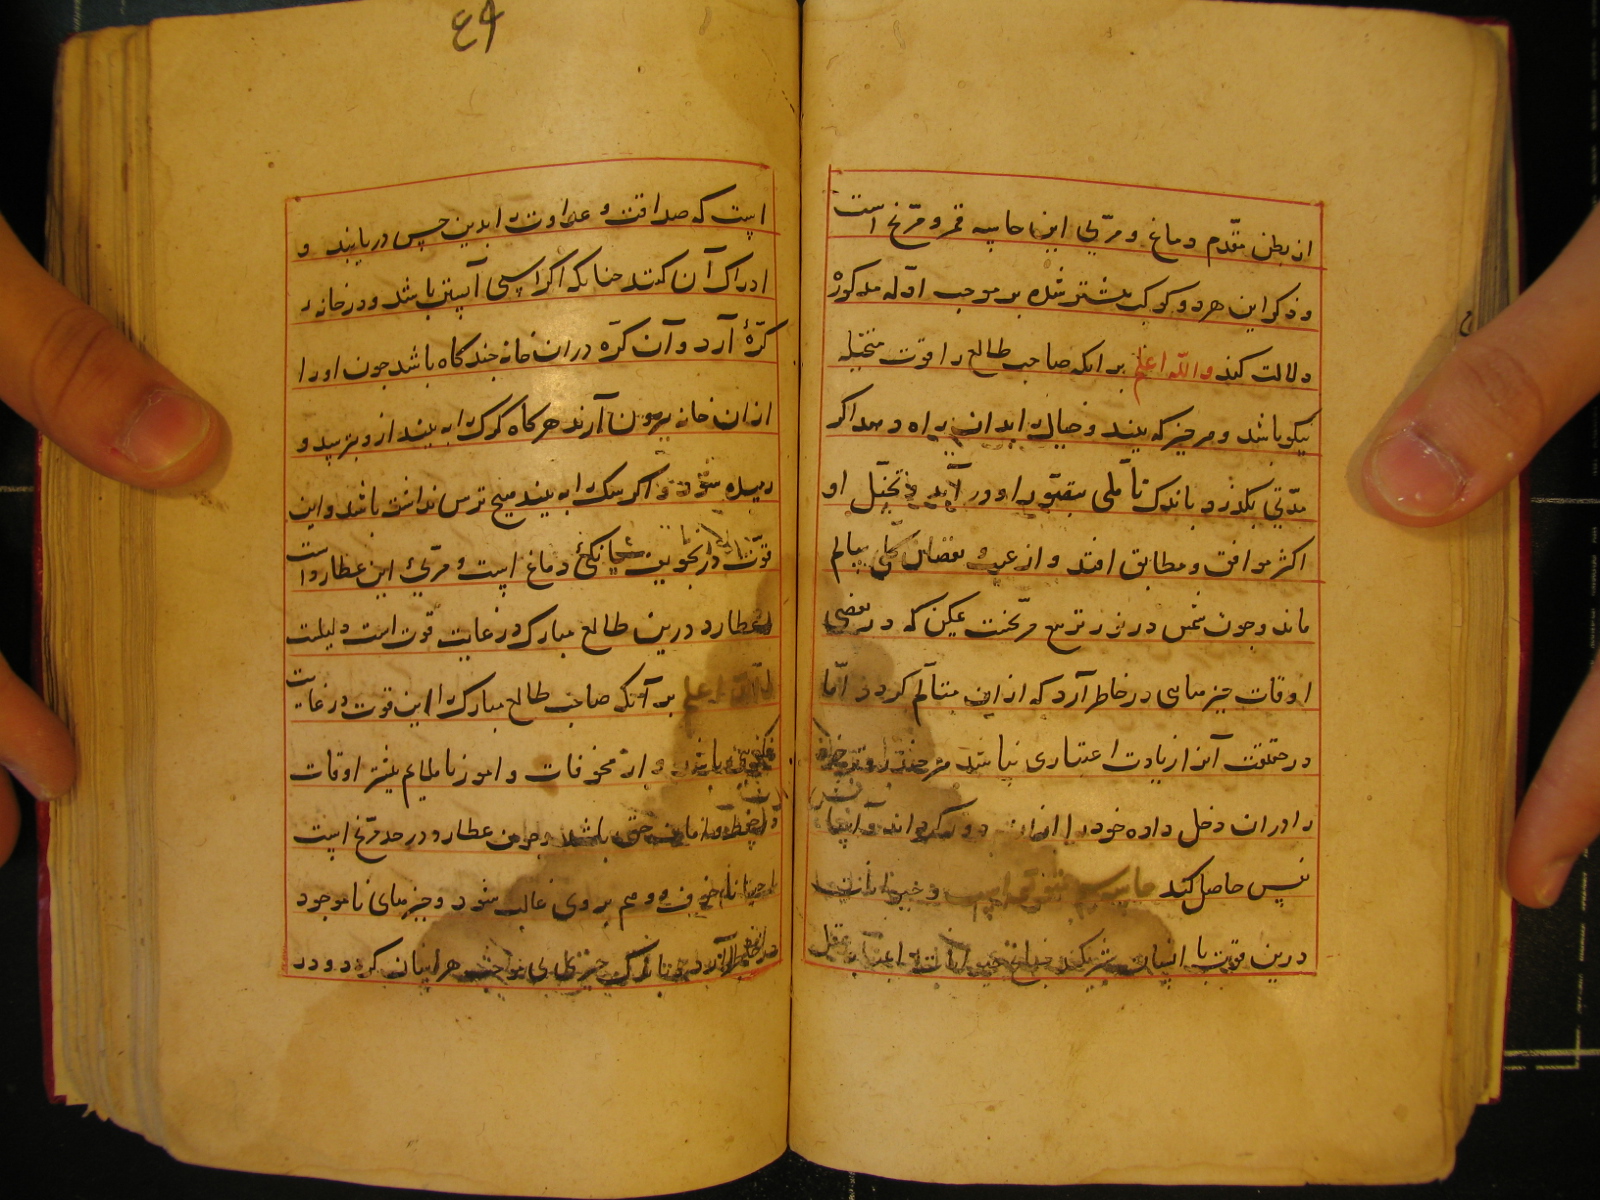 از بطن مقدم دماغ و مربی این حاسه قمر و مریخ است
و ذکر این هر دو کوکب پیشتر شده بر موجب ادله مذکوره
دلالت کند والله اعلم بر آنکه صاحب طالع را قوت متخیله
نیکو باشد و هر چیز که بیند و خیال
مدتی بگذرد باندک تأملی بتصور او در آید و تخیل او
اکثر موافق و مطابق افتد و از عیب و نقصان کلی سالم
ماند و چون شمس درین در تربیع مریخست ممکن که در بعضی
اوقات چیزهایی در خاطر آرد که از این متألم گردد اما
در حقیقت آنرا زیادت اعتباری نباشد هر چند
را در آن دخل داده خود را از آن دور
نفس حاصل کند حاسه سیم
درین قوت با انسان شریکند
٤٩
است که صداقت و عداوت را بدین حس دریابند و
ادراک آن کنند چنانکه اگر اسپی آبستن باشد و در خانه
کرّهٔ آرد و آن کرّه در آن خانه چند گاه باشد چون او را
از آن خانه بیرون آرند هر گاه گرگ را به بیند از و بترسد و
رمیده شود و اگر سگ را به بیند هیچ ترس نداشته باشد و این
قوت در تجویف دماغ است و مربی این عطارد است
و عطارد درین طالع مبارک در غایت قوت است دلیلست
والله اعلم بر آنکه صاحب طالع مبارک را این قوت در غایت
و از مخوفات و امور ناملایم بیشتر اوقات
باشد و چون عطارد در حد مریخ است
احیانا خوف و وهم بر وی غالب شود و چیزهای ناموجود
در خاطر آرد و باندک چیزی بی موجب هراسان گردد و در